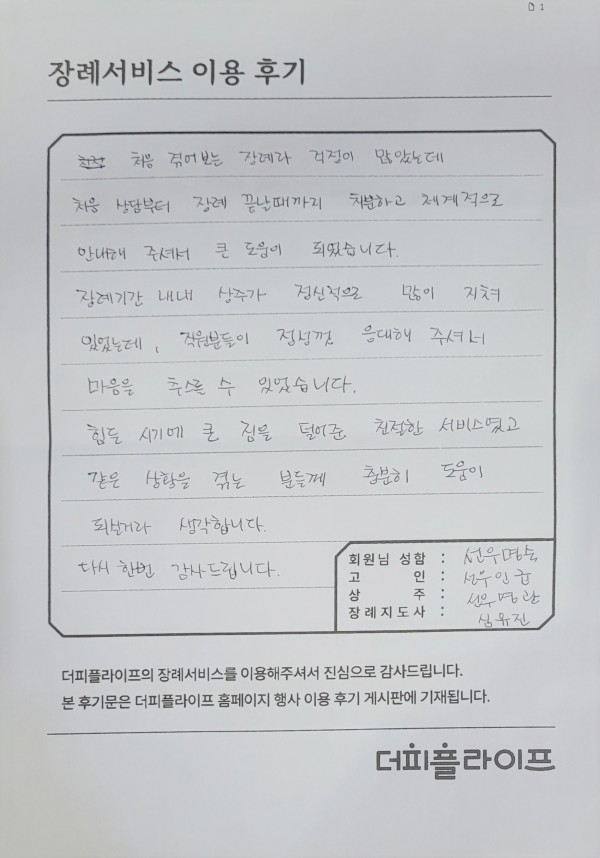 1
장례서비스 이용 후기
처음 겪어보는 장례라 걱정이 많았는데
처음 상담부터 장례 끝날때까지 차분하고 체계적으로
안내해 주셔서 큰 도움이 되었습니다.
장례기간 내내 상주가 정신적으로 많이 지쳐
있었는데, 직원분들이 정성껏 응대해 주셔서
마음을 추스를 수 있었습니다.
힘든 시기에 큰 짐을 덜어준 친절한 서비스였고
같은 상황을 겪는 분들께 충분히 도움이
되실거라 생각합니다.
다시 한번 감사드립니다.
회원님 성함 : 선우명숙
고 인 : 선우인균
상 주 : 선우명관
장례지도사 : 심유진
더피플라이프의 장례서비스를 이용해주셔서 진심으로 감사드립니다.
본 후기문은 더피플라이프 홈페이지 행사 이용 후기 게시판에 기재됩니다.
더피플라이프